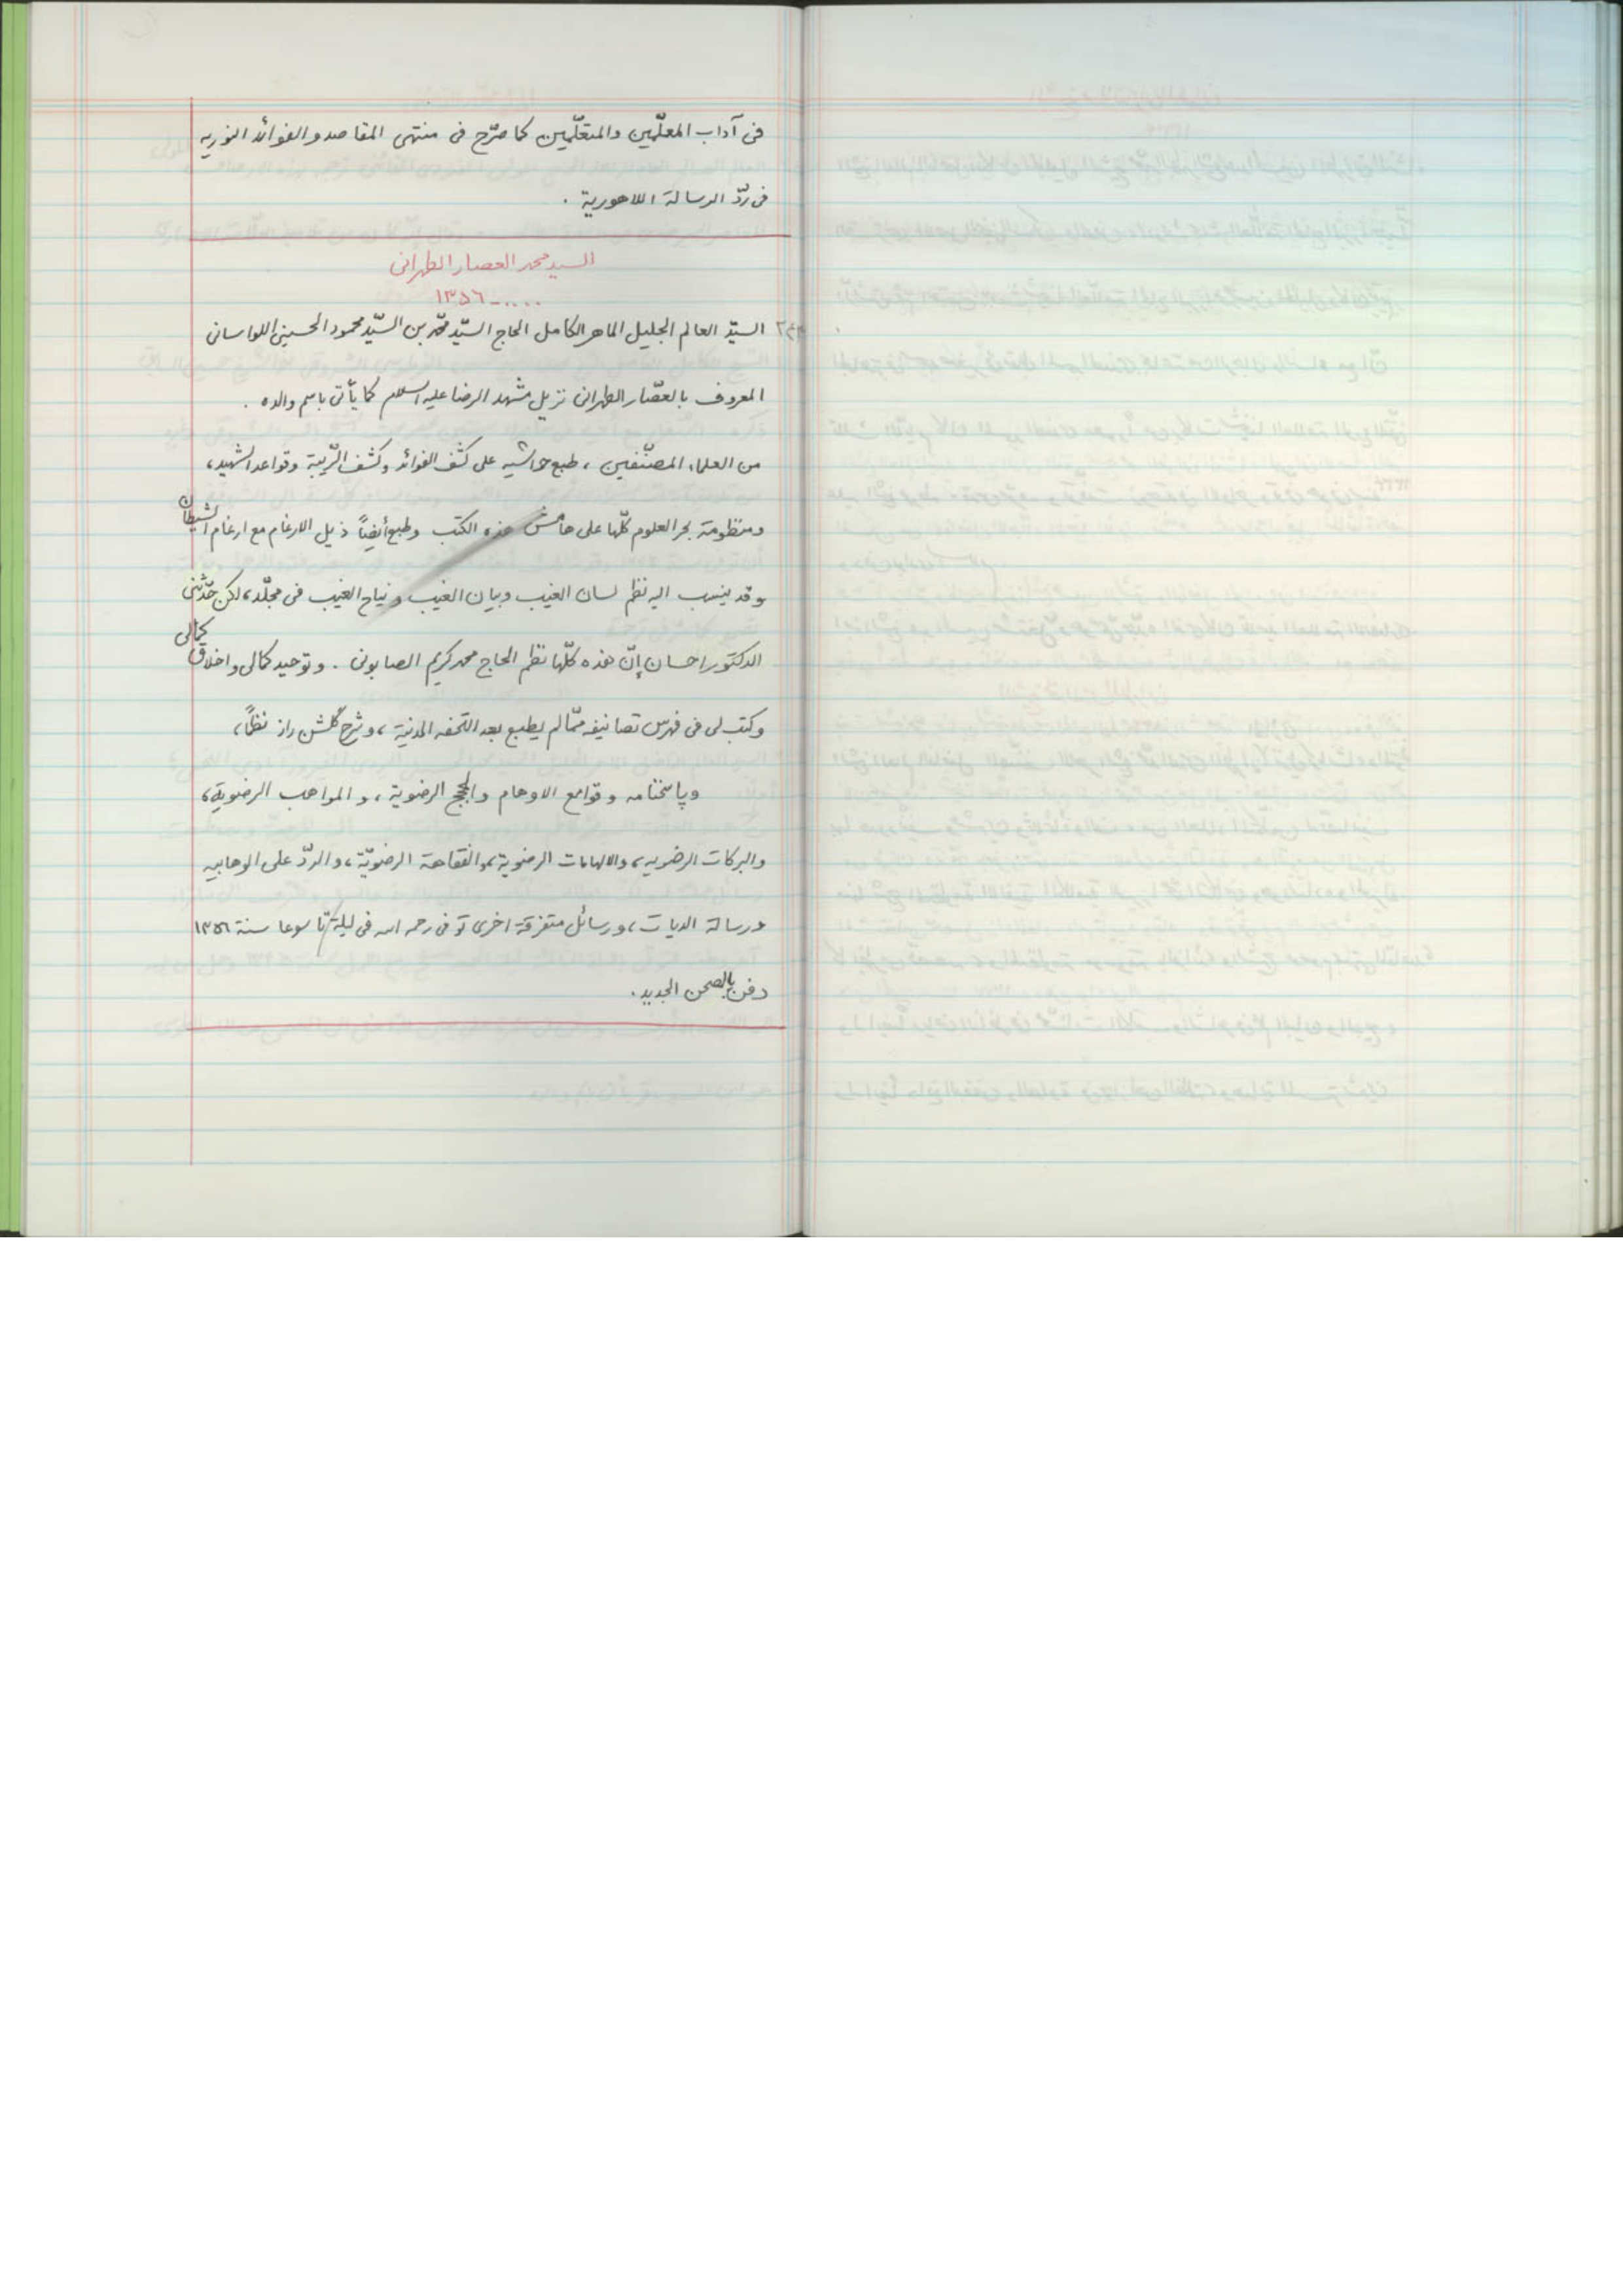 فى آداب المعلّمين والمتعلّمين كما صرّح فى منتهى المقاصد و الفوائد النوريه
فى ردّ الرسالة اللاهورية .
السيد محمد العصار الطهرانى
.... - ١٣٥٦
السيّد العالم الجليل الماهر الكامل الحاج السيّد محمّد بن السيّد محمود الحسينى اللواسانى
المعروف بالعصّار الطهرانى نزيل مشهد الرضا عليه السلام كما يأتى باسم والده .
من العلماء المصنّفين ، طبع حواشيه على كشف الفوائد و كشف الرّيبة وقواعد الشهيد ،
ومنظومة بحر العلوم كلّها على هامش هذه الكتب وطبع أيضاً ذيل الارغام مع ارغام الشيطان
وقد ينسب اليه نظم لسان الغيب وبيان الغيب و نياح الغيب فى مجلّد ، لكن حدّثنى
الدكتور احسان إنّ هذه كلّها نظم الحاج محمد كريم الصابونى . و توحيد كمالى و اخلاق كمالى
وكتب لى فى فهرس تصانيفه ممّا لم يطبع بعد التحفه المدنية ، و شرح گلشن راز نظماً ،
و پاسخنامه و قوامع الاوهام والحجج الرضوية ، و المواهب الرضوية ،
والبركات الرضويه ، والالهامات الرضوية ، والفقاهة الرضويّة ، و الردّ على الوهابيه
ورسالة الديات ، ورسائل متفرقة اخرى توفى رحمه الله فى ليلة تاسوعا سنة ١٣٥٦
دفن بالصحن الجديد .